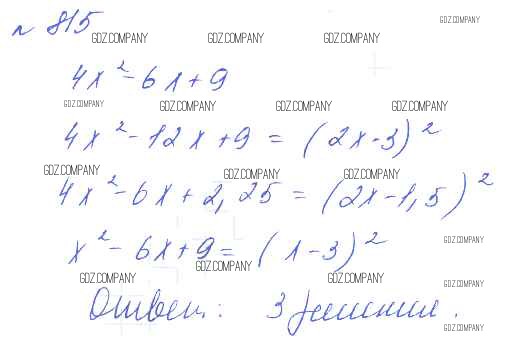 № 815
GDZ.COMPANY
GDZ.COMPANY GDZ.COMPANY GDZ.COMPANY
4x² - 6x + 9
GDZ.COMPANY GDZ.COMPANY GDZ.COMPANY GDZ.COMPANY
4x² - 12x + 9 = (2x - 3)²
GDZ.COMPANY GDZ.COMPANY GDZ.COMPANY
4x² - 6x + 2,25 = (2x - 1,5)²
x² - 6x + 9 = (x - 3)²
GDZ.COMPANY
GDZ.COMPANY
GDZ.COMPANY GDZ.COMPANY
GDZ.COMPANY
Ответ: 3
GDZ.COMPANY